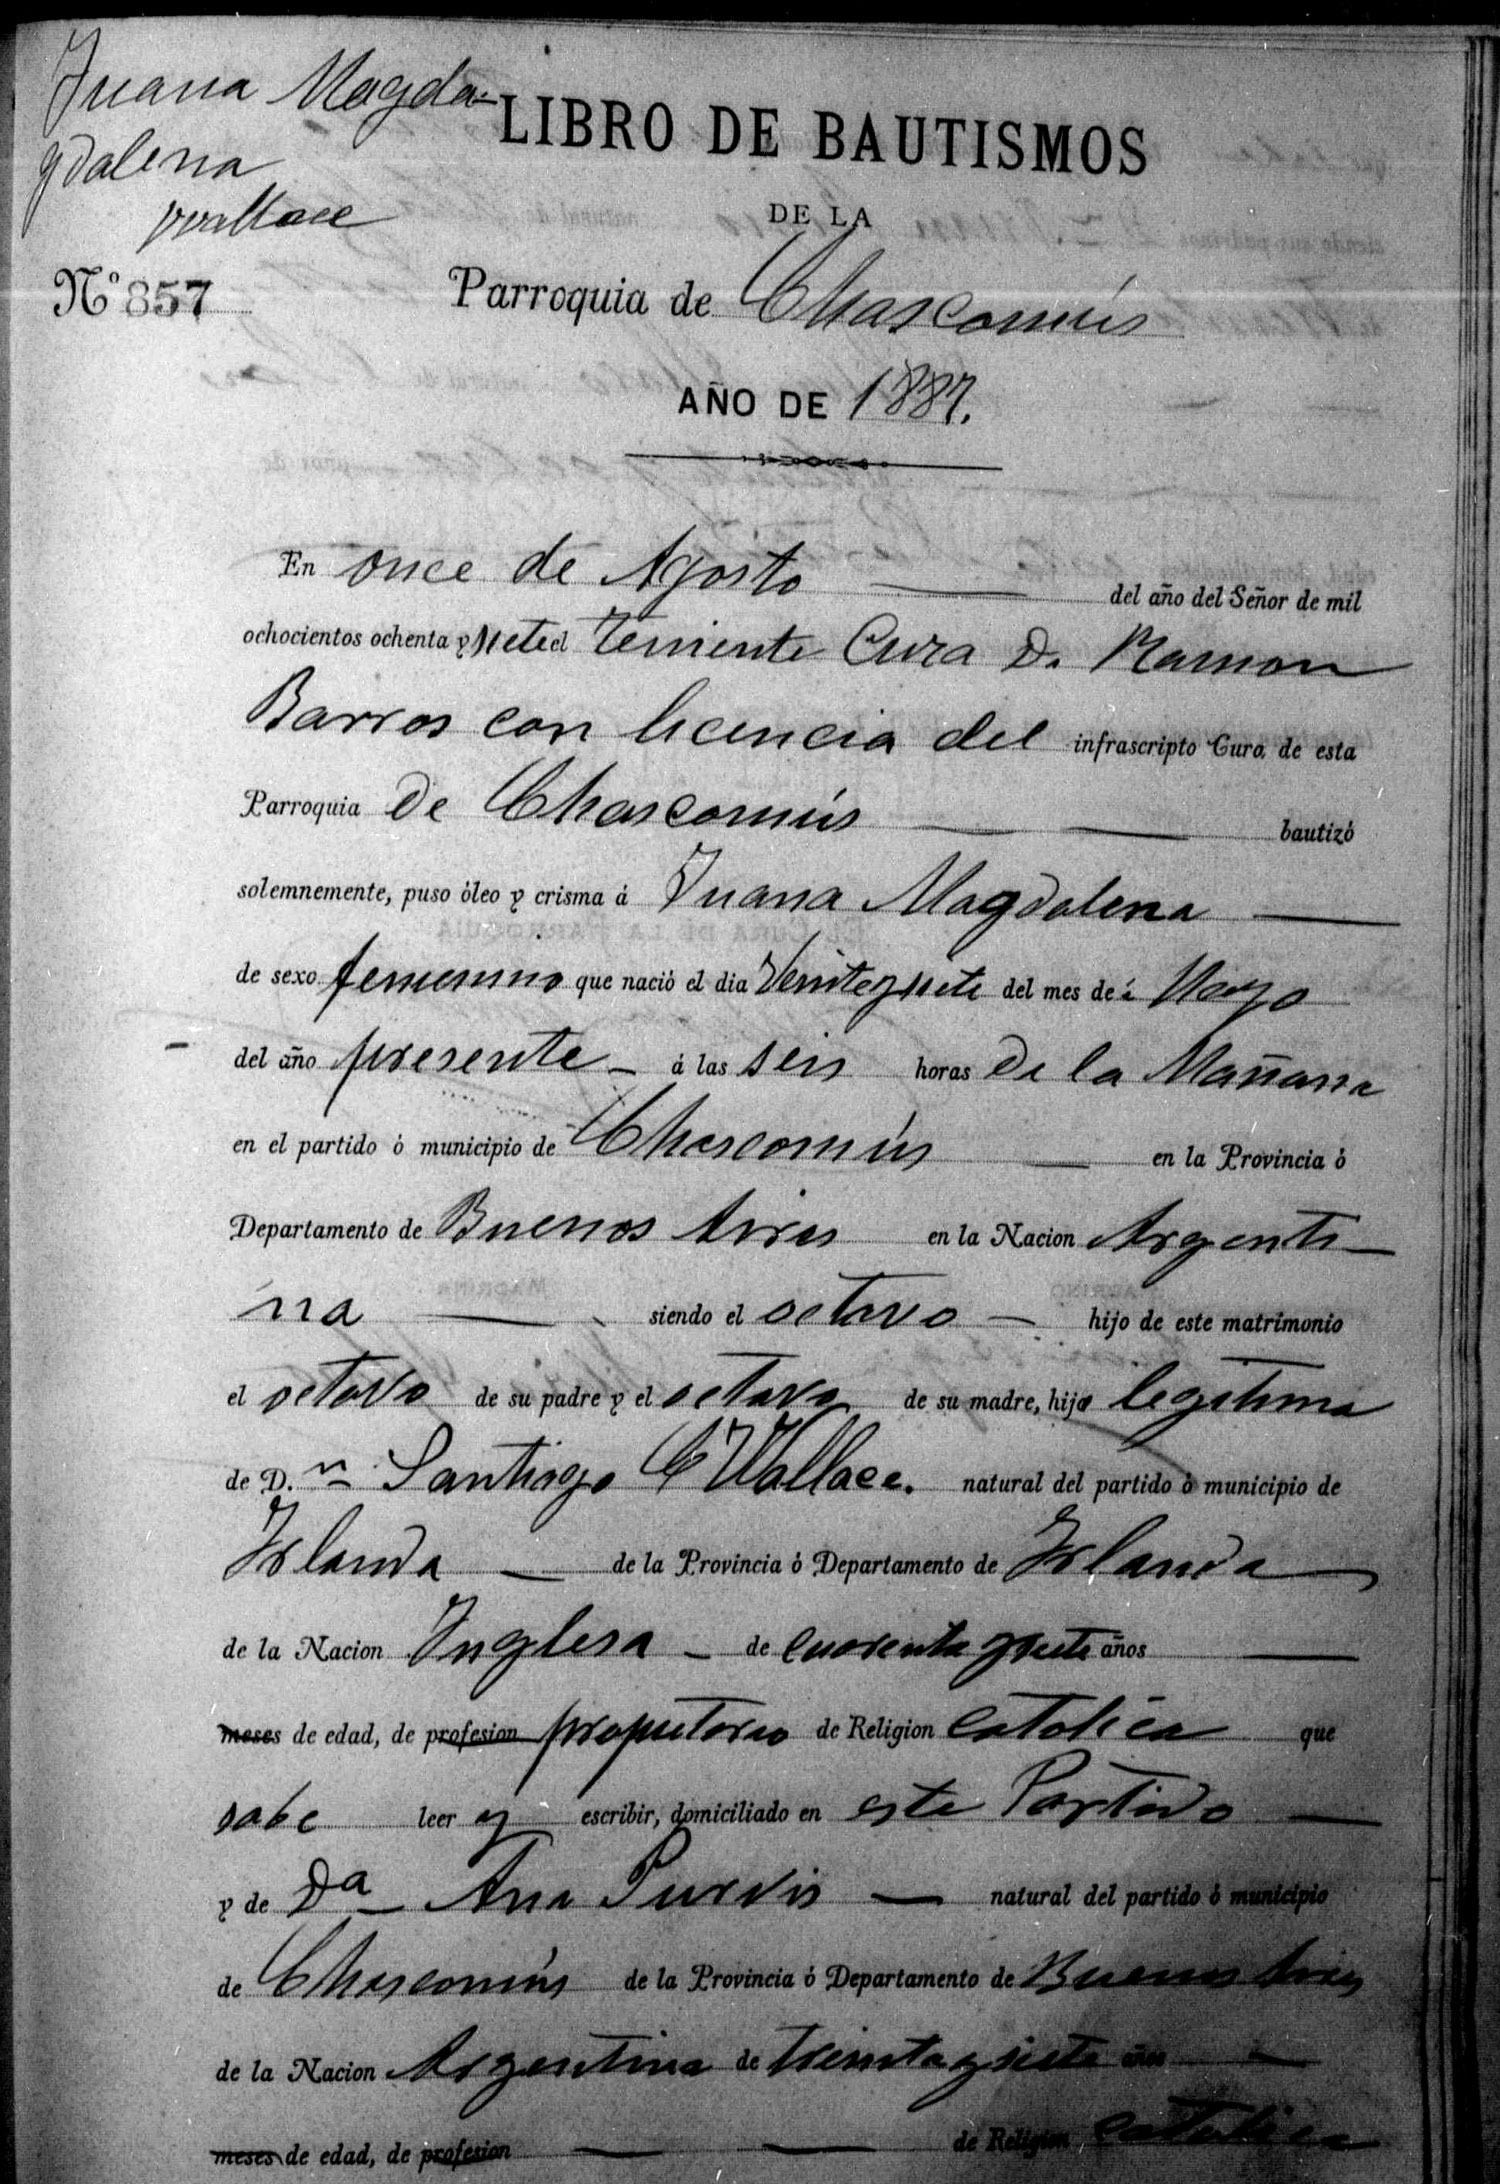 Juana Magda-
gdalena
Wallace
LIBRO DE BAUTISMOS
DE LA
Nº 857
Parroquia de Chascomús
AÑO DE 1887.
En once de Agosto del año del Señor de mil
ochocientos ochenta y siete el Teniente Cura D. Ramon
Barros con licencia del infrascripto Cura de esta
Parroquia de Chascomús bautizó
solemnemente, puso óleo y crisma á Juana Magdalena
de sexo femenino que nació el dia Veintegsiete del mes de Mayo
del año presente á las seis horas de la Mañana
en el partido ó municipio de Chascomús en la Provincia ó
Departamento de Buenos Aires en la Nacion Argenti-
na siendo el octavo hijo de este matrimonio
el octavo de su padre y el octavo de su madre, hija legitima
de D.n Santiago C Wallace. natural del partido ó municipio de
Irlanda de la Provincia ó Departamento de Irlanda
de la Nacion Inglesa de cuarenta y siete años
meses de edad, de profesion propietario de Religion catolica que
sabe leer y escribir, domiciliado en este Partido
y de Da Ana Purvis natural del partido ó municipio
de Chascomús de la Provincia ó Departamento de Buenos Aires
de la Nacion Argentina de treinta y siete años
meses de edad, de profesion de Religion catolica